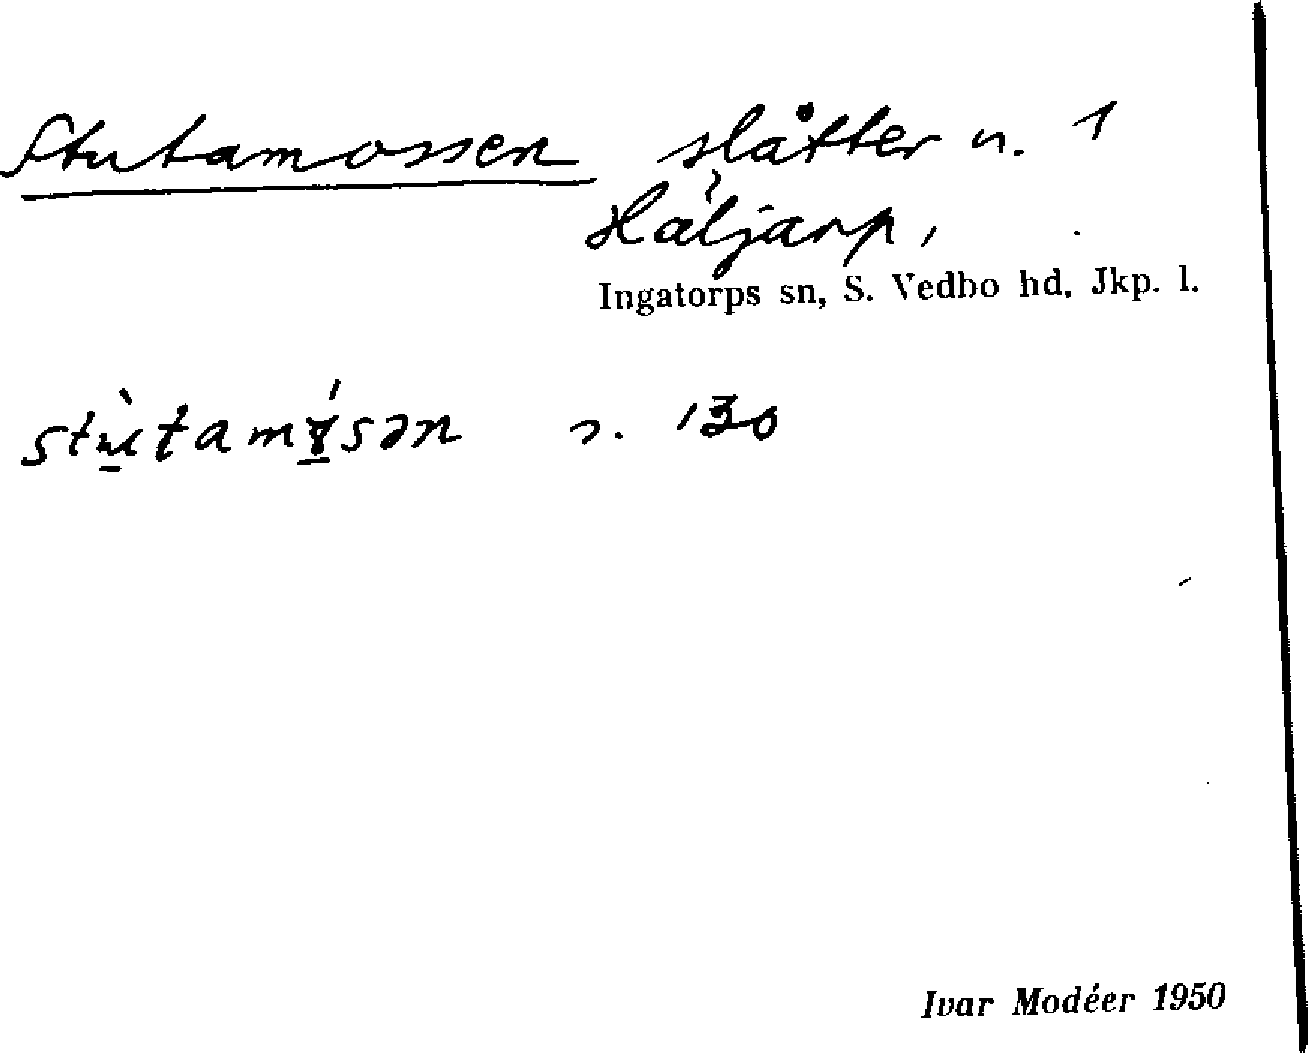 Stutamossen slåtter n. 1
Häljarp,
Ingatorps sn, S. Vedbo hd, Jkp. l.
n. 130
Ivar Modéer 1950